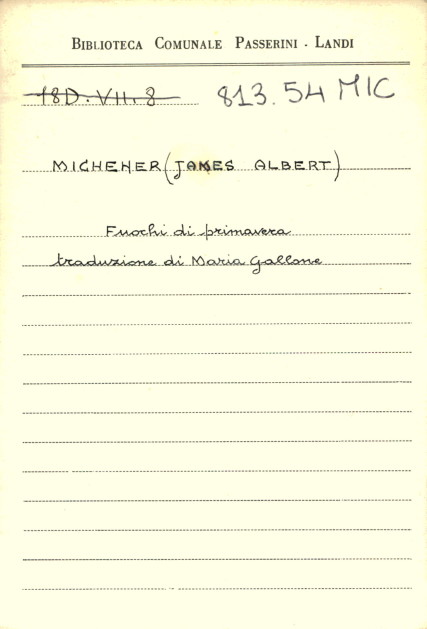 BIBLIOTECA COMUNALE PASSERINI - LANDI
18D. VII. 8 813.54 MIC
MICHENER (JAMES ALBERT)
Fuochi di primavera
traduzione di Maria Gallone